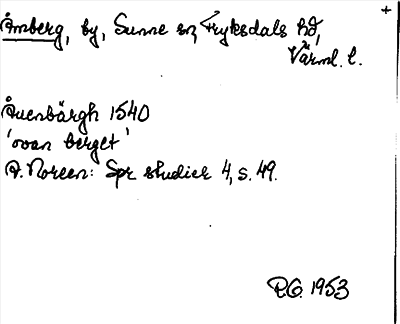 +
Åmberg, by, Sunne sn, Fryksdals hd,
Värml. l.
Åuenbärgh 1540
'ovan berget'
A. Noreen: Spr studier 4, s. 49.
R.O. 1953